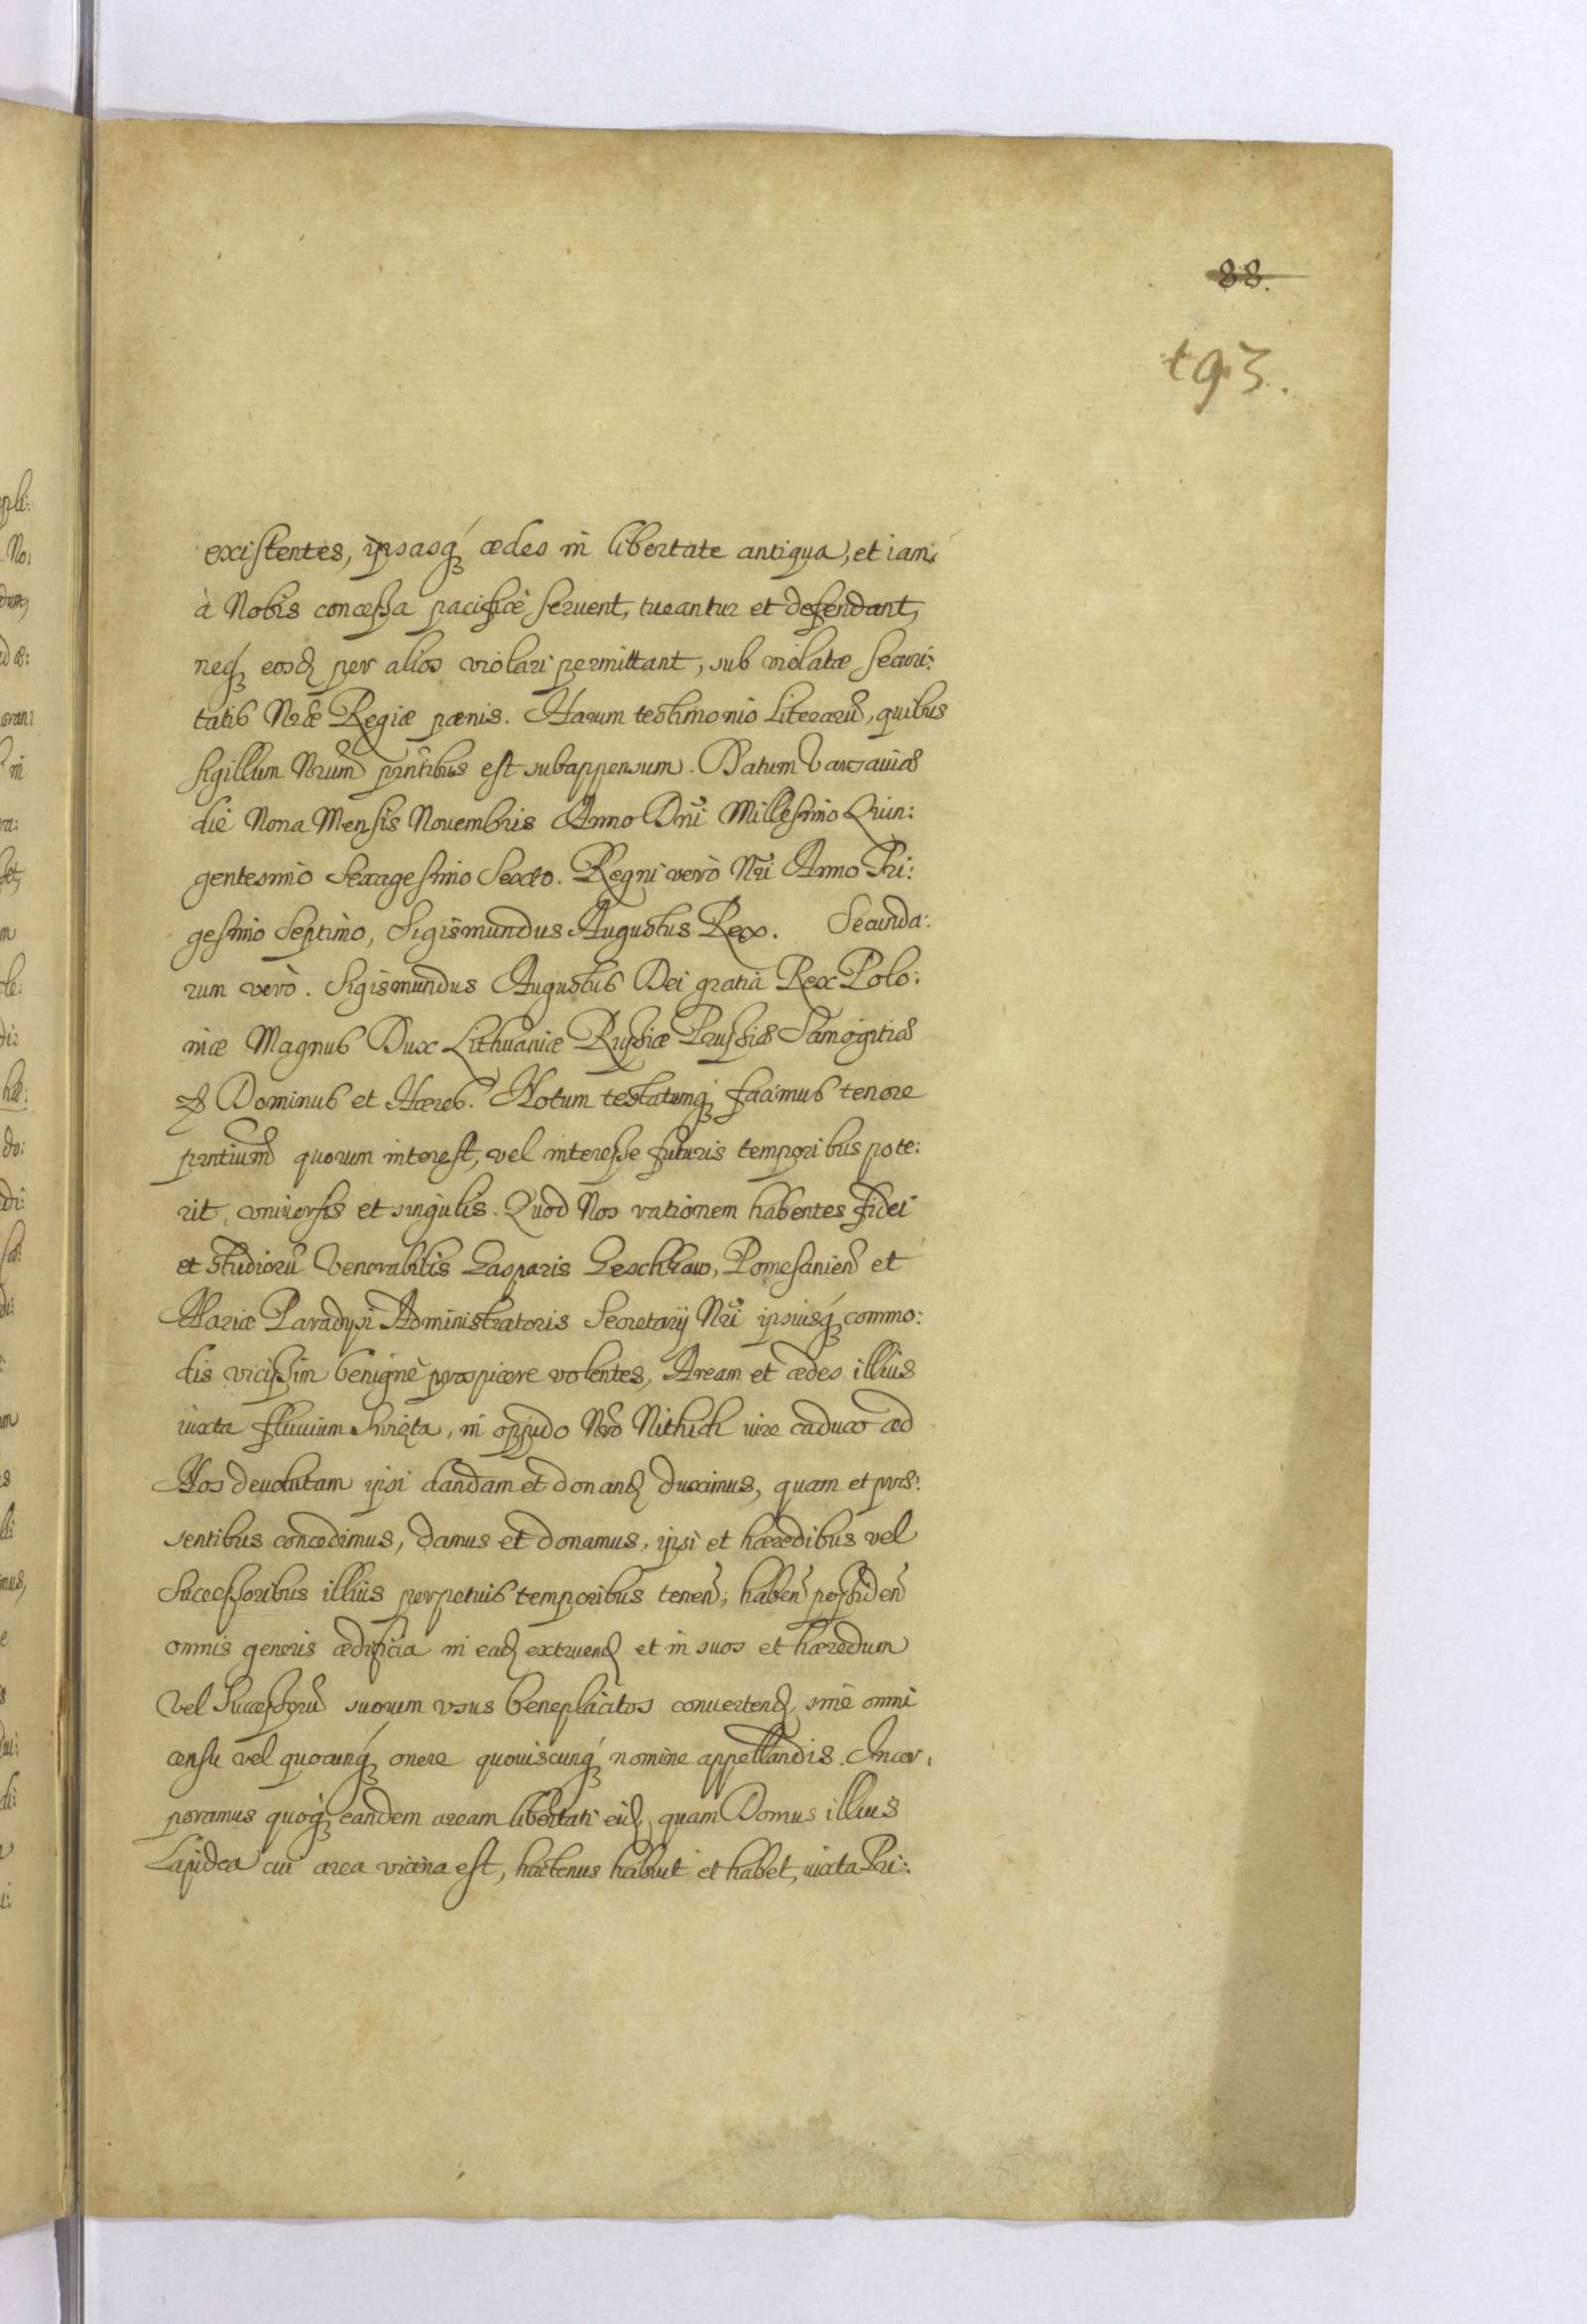 88.
193.
existentes, ipsasq́ꝫ ædes in libertate antiqua, et iam
à Nobis concessa pacificè seruent, tueantur et defendant,
neqꝫ eosd per alios violari permittant, sub violatæ securi:
tatis Nræ Regiæ pænis. Harum testimonio Literarũ, quibus
sigillum Nrum pñtibus est subappensum. Datum Varsauiæ
die Nona Mensis Nouembris Anno Dñi Millesimo Quin:
gentesimo Sexagesimo Sexto. Regni verò Nri Anno Tri:
gesimo Septimo, Sigismundus Augustus Rex. Secunda:
rum verò. Sigismundus Augustus Dei gratia Rex Polo:
niæ Magnus Dux Lithuaniæ Russiæ Prussiæ Samogitiæ
Dominus et Hæres. Notum testatumq́ꝫ facimus tenore
pñtium quorum interest, vel interesse futuris temporibus pote:
rit, vniuersis et singulis. Quod Nos rationem habentes fidei
et studiorũ Venerabilis Casparis Geschkaw, Pomesanien et
Mariæ Paradysi Administratoris Secretarij Nri ipsiusq́ꝫ commo:
dis vicissim benignè prospicere volentes, Aream et ædes illius
iuxta fluuium in oppido Nro Nithich iure caduco ad
Nos deuolutam ipsi dandam et donand duximus, quam et præ:
sentibus concedimus, damus et donamus, ipsi et hæredibus vel
Successoribus illius perpetuis temporibus tenen, haben possiden
omnis generis ædificia in ead extruend et in suos et hæredum
Vel Successorũ suorum vsus beneplacitos conuertend sine omni
censu vel quocunq́ꝫ onere quouiscunq́ꝫ nomine appellandis. Incor:
poramus quoqꝫ eandem aream libertati eid, quam Domus illius
Lapidea cui area vicina est, hactenus habuit et habet, iuxta Pri: